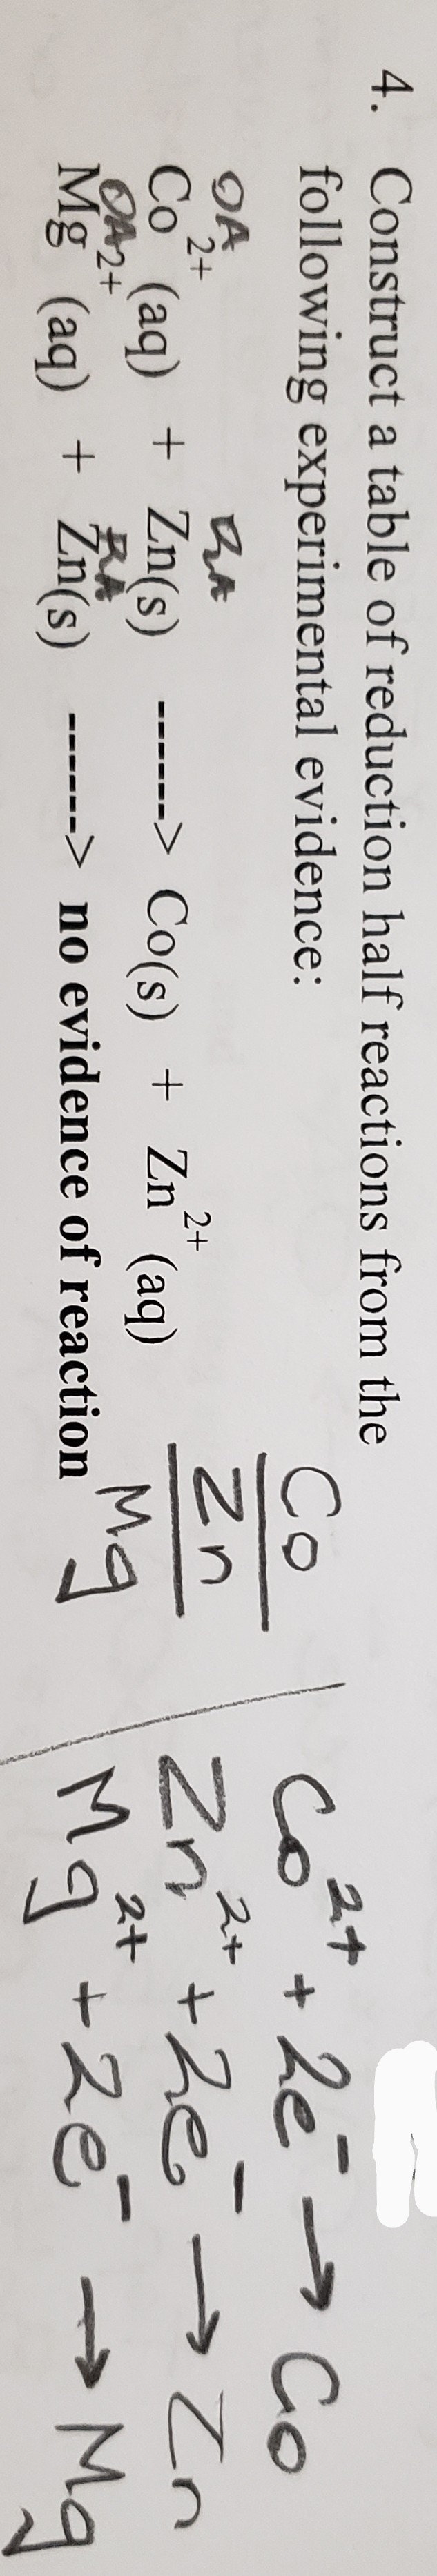 4. Construct a table of reduction half reactions from the
following experimental evidence:
OA RA
Co²⁺(aq) + Zn(s) ------> Co(s) + Zn²⁺(aq)
OA RA
Mg²⁺(aq) + Zn(s) ------> no evidence of reaction
Co
Zn
Mg
Co²⁺ + 2e⁻ → Co
Zn²⁺ + 2e⁻ → Zn
Mg²⁺ + 2e⁻ → Mg